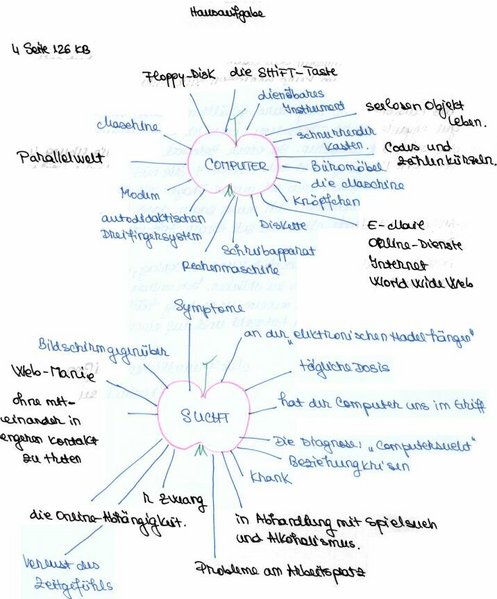 Hausaufgabe
4 Seite 126 KB
Floppy-Disk
die SHiFT-Taste
dienstbares
Instrument
seelosen Objekt
leben.
Maschine
schnurrender
Kasten.
Codes und
Zahlenkürzeln.
Parallelwelt
COMPUTER
Büromöbel
die Maschine
Knöpfchen
Modem
autodidaktischen
Dreifingersystem
Diskette
Schreibapparat
Rechenmaschine
E-Mave
Online-Dienste
Internet
World Wide Web
Symptome
an der „elektronischen Nadel hängen"
Bildschirmgegenüber
tägliche Dosis
Web-Manie
hat der Computer uns im Griff
ohne mit-
einander in
Kontakt
zu treten
SUCHT
Die Diagnose: „Computersucht"
Beziehungskrisen
krank
Zwang
die Online-Abhängigkeit.
in Abhandlung mit Spielsuch
und Alkoholismus.
Verlust des
Zeitgefühls
Probleme am Arbeitsplatz